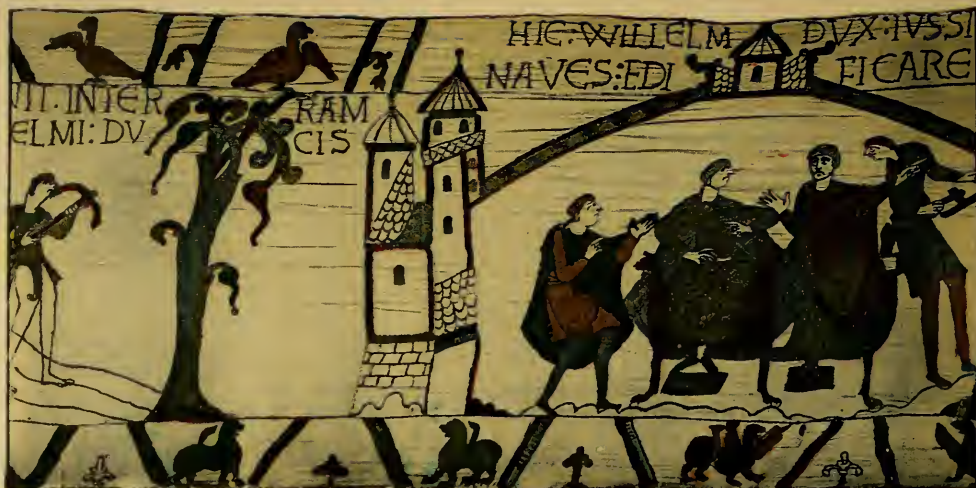 IT. INTER RAM
ELMI: DV CIS
HIC: WILLELM DVX: IVSSI
NAVES: EDI FICARE